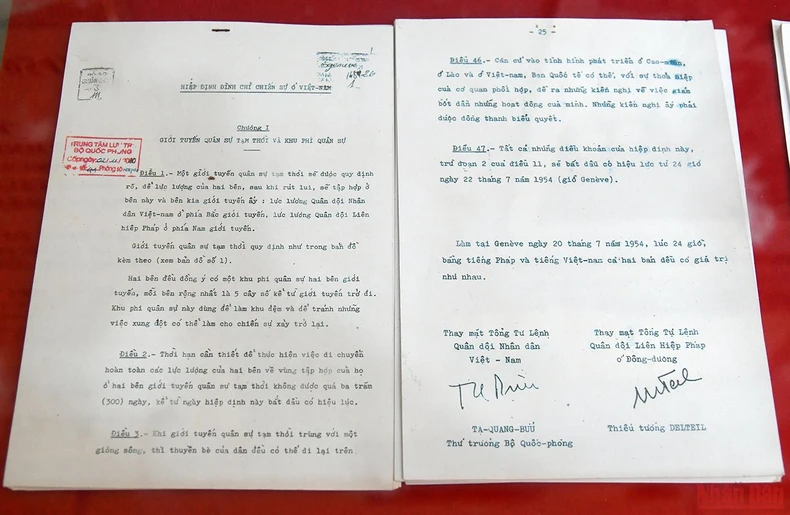 HIỆP ĐỊNH ĐÌNH CHỈ CHIẾN SỰ Ở VIỆT-NAM
Chương I
GIỚI TUYẾN QUÂN SỰ TẠM THỜI VÀ KHU PHI QUÂN SỰ
TRUNG TÂM LƯU TRỮ
BỘ QUỐC PHÒNG
Điều 1.- Một giới tuyến quân sự tạm thời sẽ được quy định
rõ, để lực lượng của hai bên, sau khi rút lui, sẽ tập hợp ở
bên này và bên kia giới tuyến ấy : lực lượng Quân đội Nhân
dân Việt-nam ở phía Bắc giới tuyến, lực lượng Quân đội Liên
hiệp Pháp ở phía Nam giới tuyến.
Giới tuyến quân sự tạm thời quy định như trong bản đồ
kèm theo (xem bản đồ số 1).
Hai bên đều đồng ý có một khu phi quân sự hai bên giới
tuyến, mỗi bên rộng nhất là 5 cây số kể từ giới tuyến trở đi.
Khu phi quân sự này dùng để làm khu đệm và để tránh những
việc xung đột có thể làm cho chiến sự xảy trở lại.
Điều 2.- Thời hạn cần thiết để thực hiện việc di chuyển
hoàn toàn các lực lượng của hai bên về vùng tập hợp của họ
ở hai bên giới tuyến quân sự tạm thời không được quá ba trăm
(300) ngày, kể từ ngày hiệp định này bắt đầu có hiệu lực.
Điều 3.- Khi giới tuyến quân sự tạm thời trùng với một
giòng sông, thì thuyền bè của dân đều có thể đi lại trên
- 25 -
Điều 46.- Căn cứ vào tình hình phát triển ở Cao-mên,
ở Lào và ở Việt-nam, Ban Quốc tế có thể, với sự thoả hiệp
của cơ quan phối hợp, đề ra những kiến nghị về việc giảm
bớt dần những hoạt động của mình. Những kiến nghị ấy phải
được đồng thanh biểu quyết.
Điều 47.- Tất cả những điều khoản của hiệp định này,
trừ đoạn 2 của điều 11, sẽ bắt đầu có hiệu lực từ 24 giờ
ngày 22 tháng 7 năm 1954 (giờ Genève).
Làm tại Genève ngày 20 tháng 7 năm 1954, lúc 24 giờ,
bằng tiếng Pháp và tiếng Việt-nam cả hai bản đều có giá trị
như nhau.
Thay mặt Tổng Tư Lệnh
Quân đội Nhân dân
Việt - Nam
Thay mặt Tổng Tư Lệnh
Quân đội Liên Hiệp Pháp
ở Đông-dương
TẠ-QUANG-BỬU
Thứ trưởng Bộ Quốc-phòng
Thiếu tướng DELTEIL
Nhân Dân